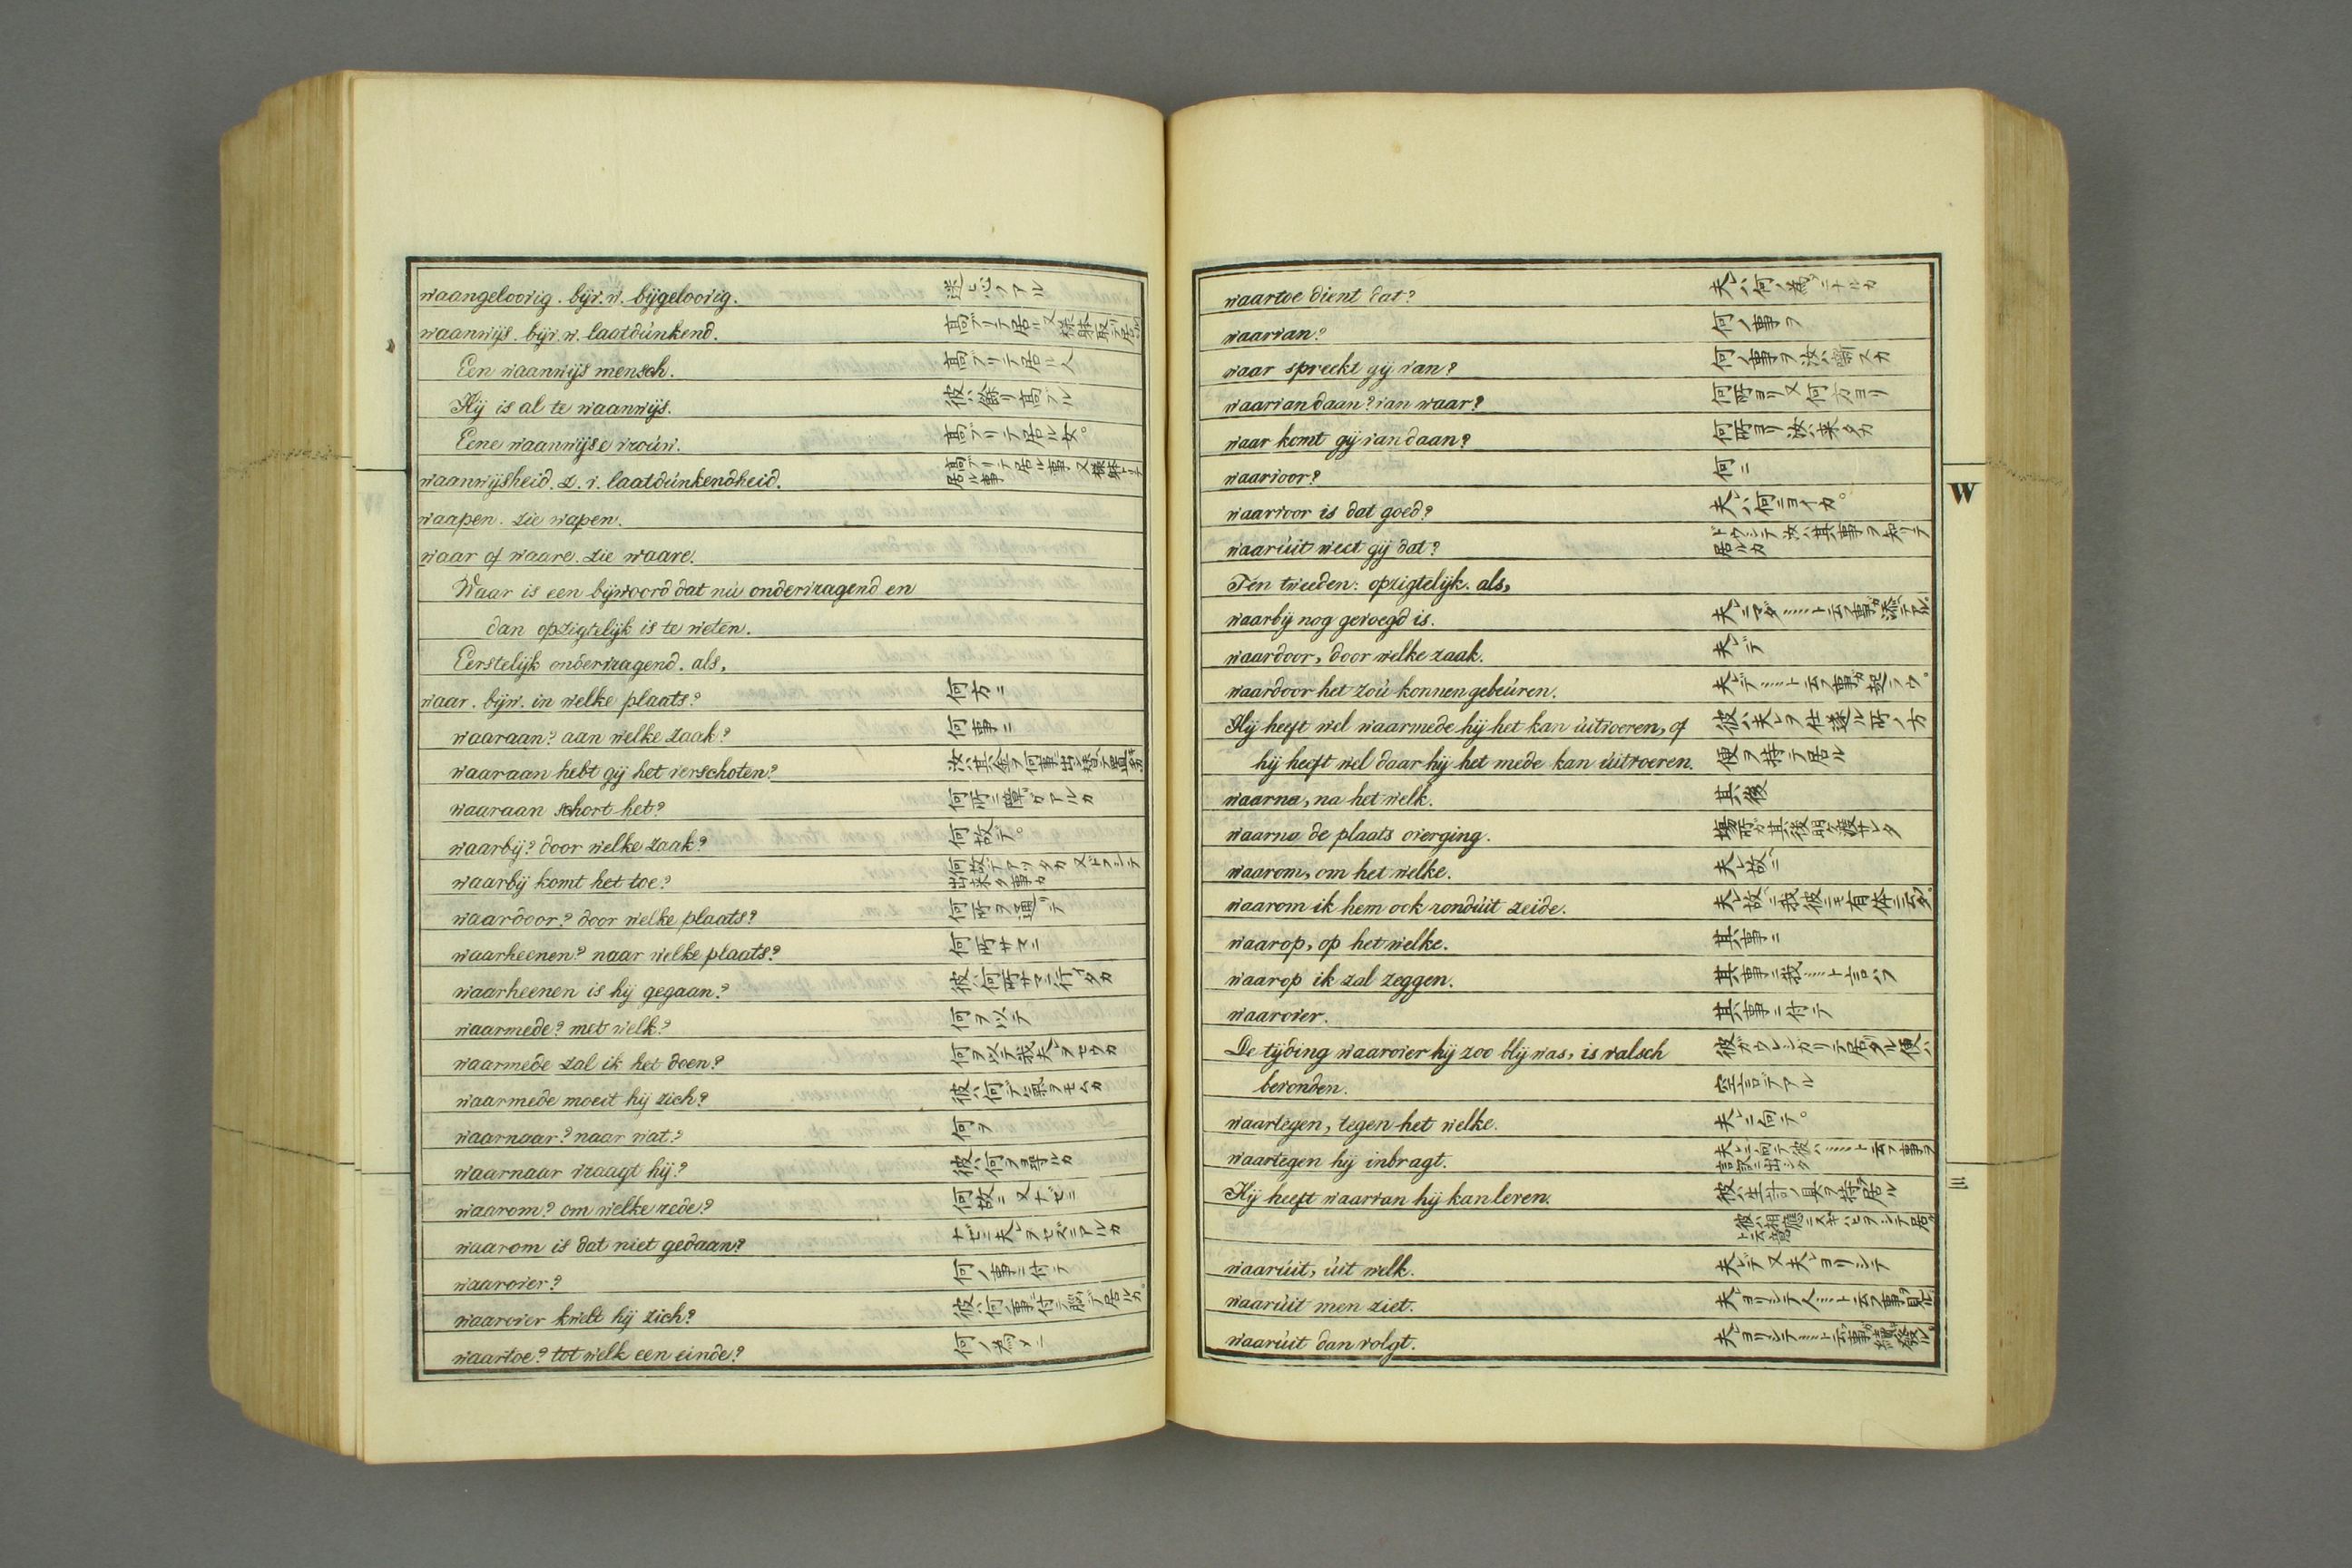 waangeloovig. bijv. w. bijgeloovig. 迷ヒ心ノアル
waanwijs. bijv. w. laatdúnkend. 高ブリテ居ル又
Een waanwijs mensch. 高ブリテ居ル人
Hij is al te waanwijs. 彼ハ餘リ高ブル
Eene waanwijse vroúw. 高ブリテ居ル女。
waanwijsheid. z. v. laatdúnkendheid. 高ブリテ居ル事又 居ル事
waapen. zie wapen.
waar of waare. zie waare.
Waar is een bijwoord dat nú ondervragend en
dan opzigtelijk is te weten.
Eerstelijk ondervragend. als,
waar. bijw. in welke plaats? 何方ニ
waaraan? aan welke zaak? 何事ニ
waaraan hebt gij het verschoten? 汝ハ其金ヲ何事ニ出シ替テ置タカ
waaraan schort het? 何所ニ障リガアルカ
waarbij? door welke zaak? 何故デ。
waarbij komt het toe? 何故デアツタカ又ドフシテ出来タ事カ
waardoor? door welke plaats? 何所ヲ通リテ
waarheenen? naar welke plaats? 何所サマニ
waarheenen is hij gegaan? 彼ハ何所サマニ行イタカ
waarmede? met welk? 何ヲ以テ
waarmede zal ik het doen? 何ヲ以テ我夫レヲセウカ
waarmede moeit hij zich? 彼ハ何デ氣ヲモムカ
waarnaar? naar wat? 何ヲ
waarnaar vraagt hij? 彼ハ何ヲ尋ルカ
waarom? om welke rede? 何故ニ又ナゼニ
waarom is dat niet gedaan? ナゼニ夫レヲセズニアルカ
waarover? 何ノ事ニ付テ
waarover kwelt hij zich? 彼ハ何事ニ付テ腦テ居ルカ。
waartoe? tot welk een einde? 何ノ為メニ
waartoe dient dat? 夫レハ何ノ為メニナルカ
waarvan? 何ノ事ヲ
waar spreekt gij van? 何ノ事ヲ汝ハ噺スカ
waarvandaan? van waar? 何所ヨリ又何方ヨリ
waar komt gij vandaan? 何所ヨリ汝ハ来タカ
waarvoor? 何ニ
waarvoor is dat goed? 夫レハ何ニヨイカ。
waarúit weet gij dat? ドウシテ汝ハ其事ヲ知リテ居ルカ
W
Ten tweeden: opzigtelijk. als,
waarbij nog gevoegd is. 夫レニマダ……ト云フ事ガ添テアル。
waardoor, door welke zaak. 夫レデ
waardoor het zoú konnen gebeúren. 夫レデ……ト云フ事ガ起ラウ。
Hij heeft wel waarmede hij het kan úitvoeren, of 彼ハ夫レヲ仕遂ル所ノ方
hij heeft wel daar hij het mede kan úitvoeren. 便ヲ持テ居ル
waarna, na het welk. 其後
waarna de plaats overging. 場所ガ其後明ケ渡サレタ
waarom, om het welke. 夫レ故ニ
waarom ik hem ook rondúit zeide. 夫レ故ニ我彼ニモ有体ニ云タ。
waarop, op het welke. 其事ニ
waarop ik zal zeggen. 其事ニ我……ト言ハフ
waarover. 其事ニ付テ
De tijding waarover hij zoo blij was, is valsch 彼ガウレシガリテ居タル便ハ
bevonden. 空言デアル
waartegen, tegen het welke. 夫レニ向テ。
waartegen hij inbragt. 夫レニ向テ彼ハ……ト云フ事ヲ言ヒ出シタ
三
Hij heeft waarvan hij kan leven. 彼ハ生計ノ具ヲ持テ居ル
彼ハ相應ニスギハヒヲシテ居ル ト云意
waarúit, úit welk. 夫レデ又夫レヨリシテ
waarúit men ziet. 夫レヨリシテ人……ト云フ事ヲ見ル
waarúit dan volgt. 夫レヨリシテ……ト云フ事ガ續テ發ル。